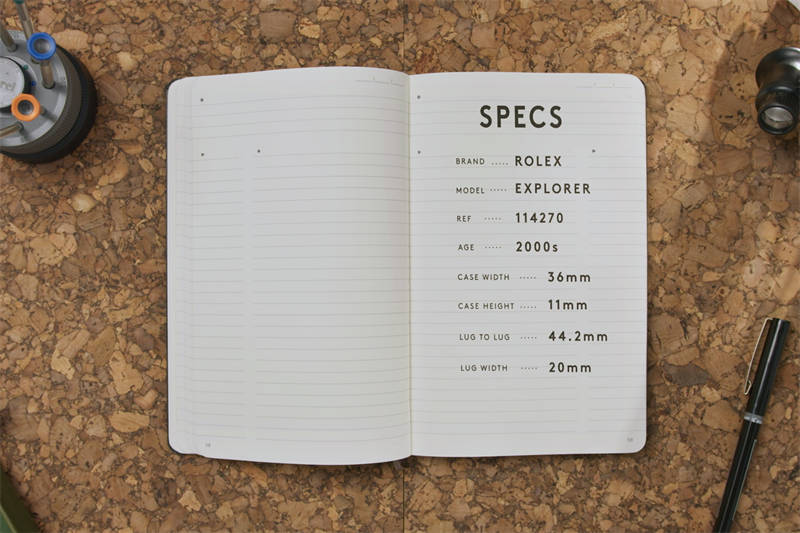 SPECS
BRAND ..... ROLEX
MODEL ..... EXPLORER
REF ..... 114270
AGE ..... 2000s
CASE WIDTH ..... 36mm
CASE HEIGHT ..... 11mm
LUG TO LUG ..... 44.2mm
LUG WIDTH ..... 20mm